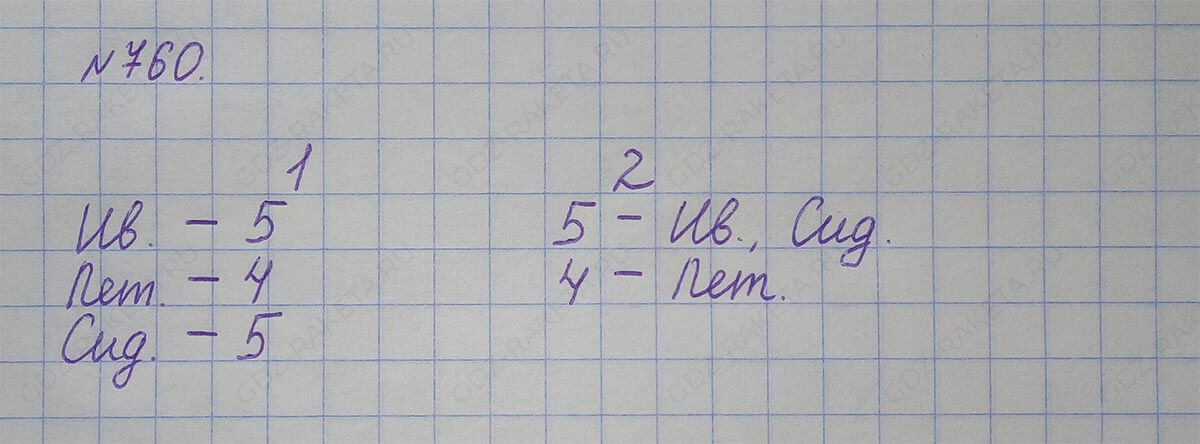 №760.
1
Ив. – 5
Пет. – 4
Сид. – 5
2
5 – Ив., Сид.
4 – Пет.